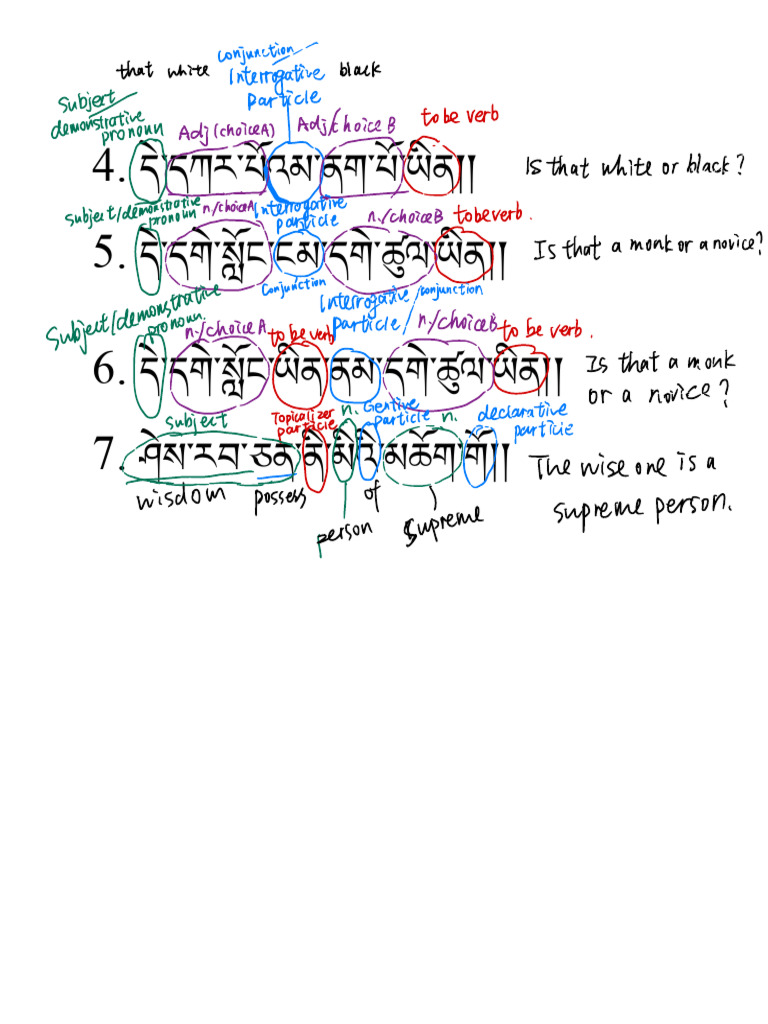 conjunction
that white Interrogative black
Particle
Subject
demonstrative pronoun Adj (choice A) Adj/choice B to be verb
4. དེ་དཀར་པོ་འམ་ནག་པོ་ཡིན།། Is that white or black?
Subject/demonstrative pronoun n./choice A Interrogative particle n./choice B to be verb.
5. དེ་དགེ་སློང་ངམ་དགེ་ཚུལ་ཡིན།། Is that a monk or a novice?
Conjunction
Subject/demonstrative pronoun. n./choice A to be verb Interrogative/conjunction particle/ n./choice B to be verb.
6. དེ་དགེ་སློང་ཡིན་ནམ་དགེ་ཚུལ་ཡིན།། Is that a monk or a novice?
subject Topicalizer particle n. Genitive particle n. declarative particle
7. ཤེས་རབ་ཅན་ནི་མི་འི་མཆོག་གོ།། The wise one is a supreme person.
wisdom possess person of supreme